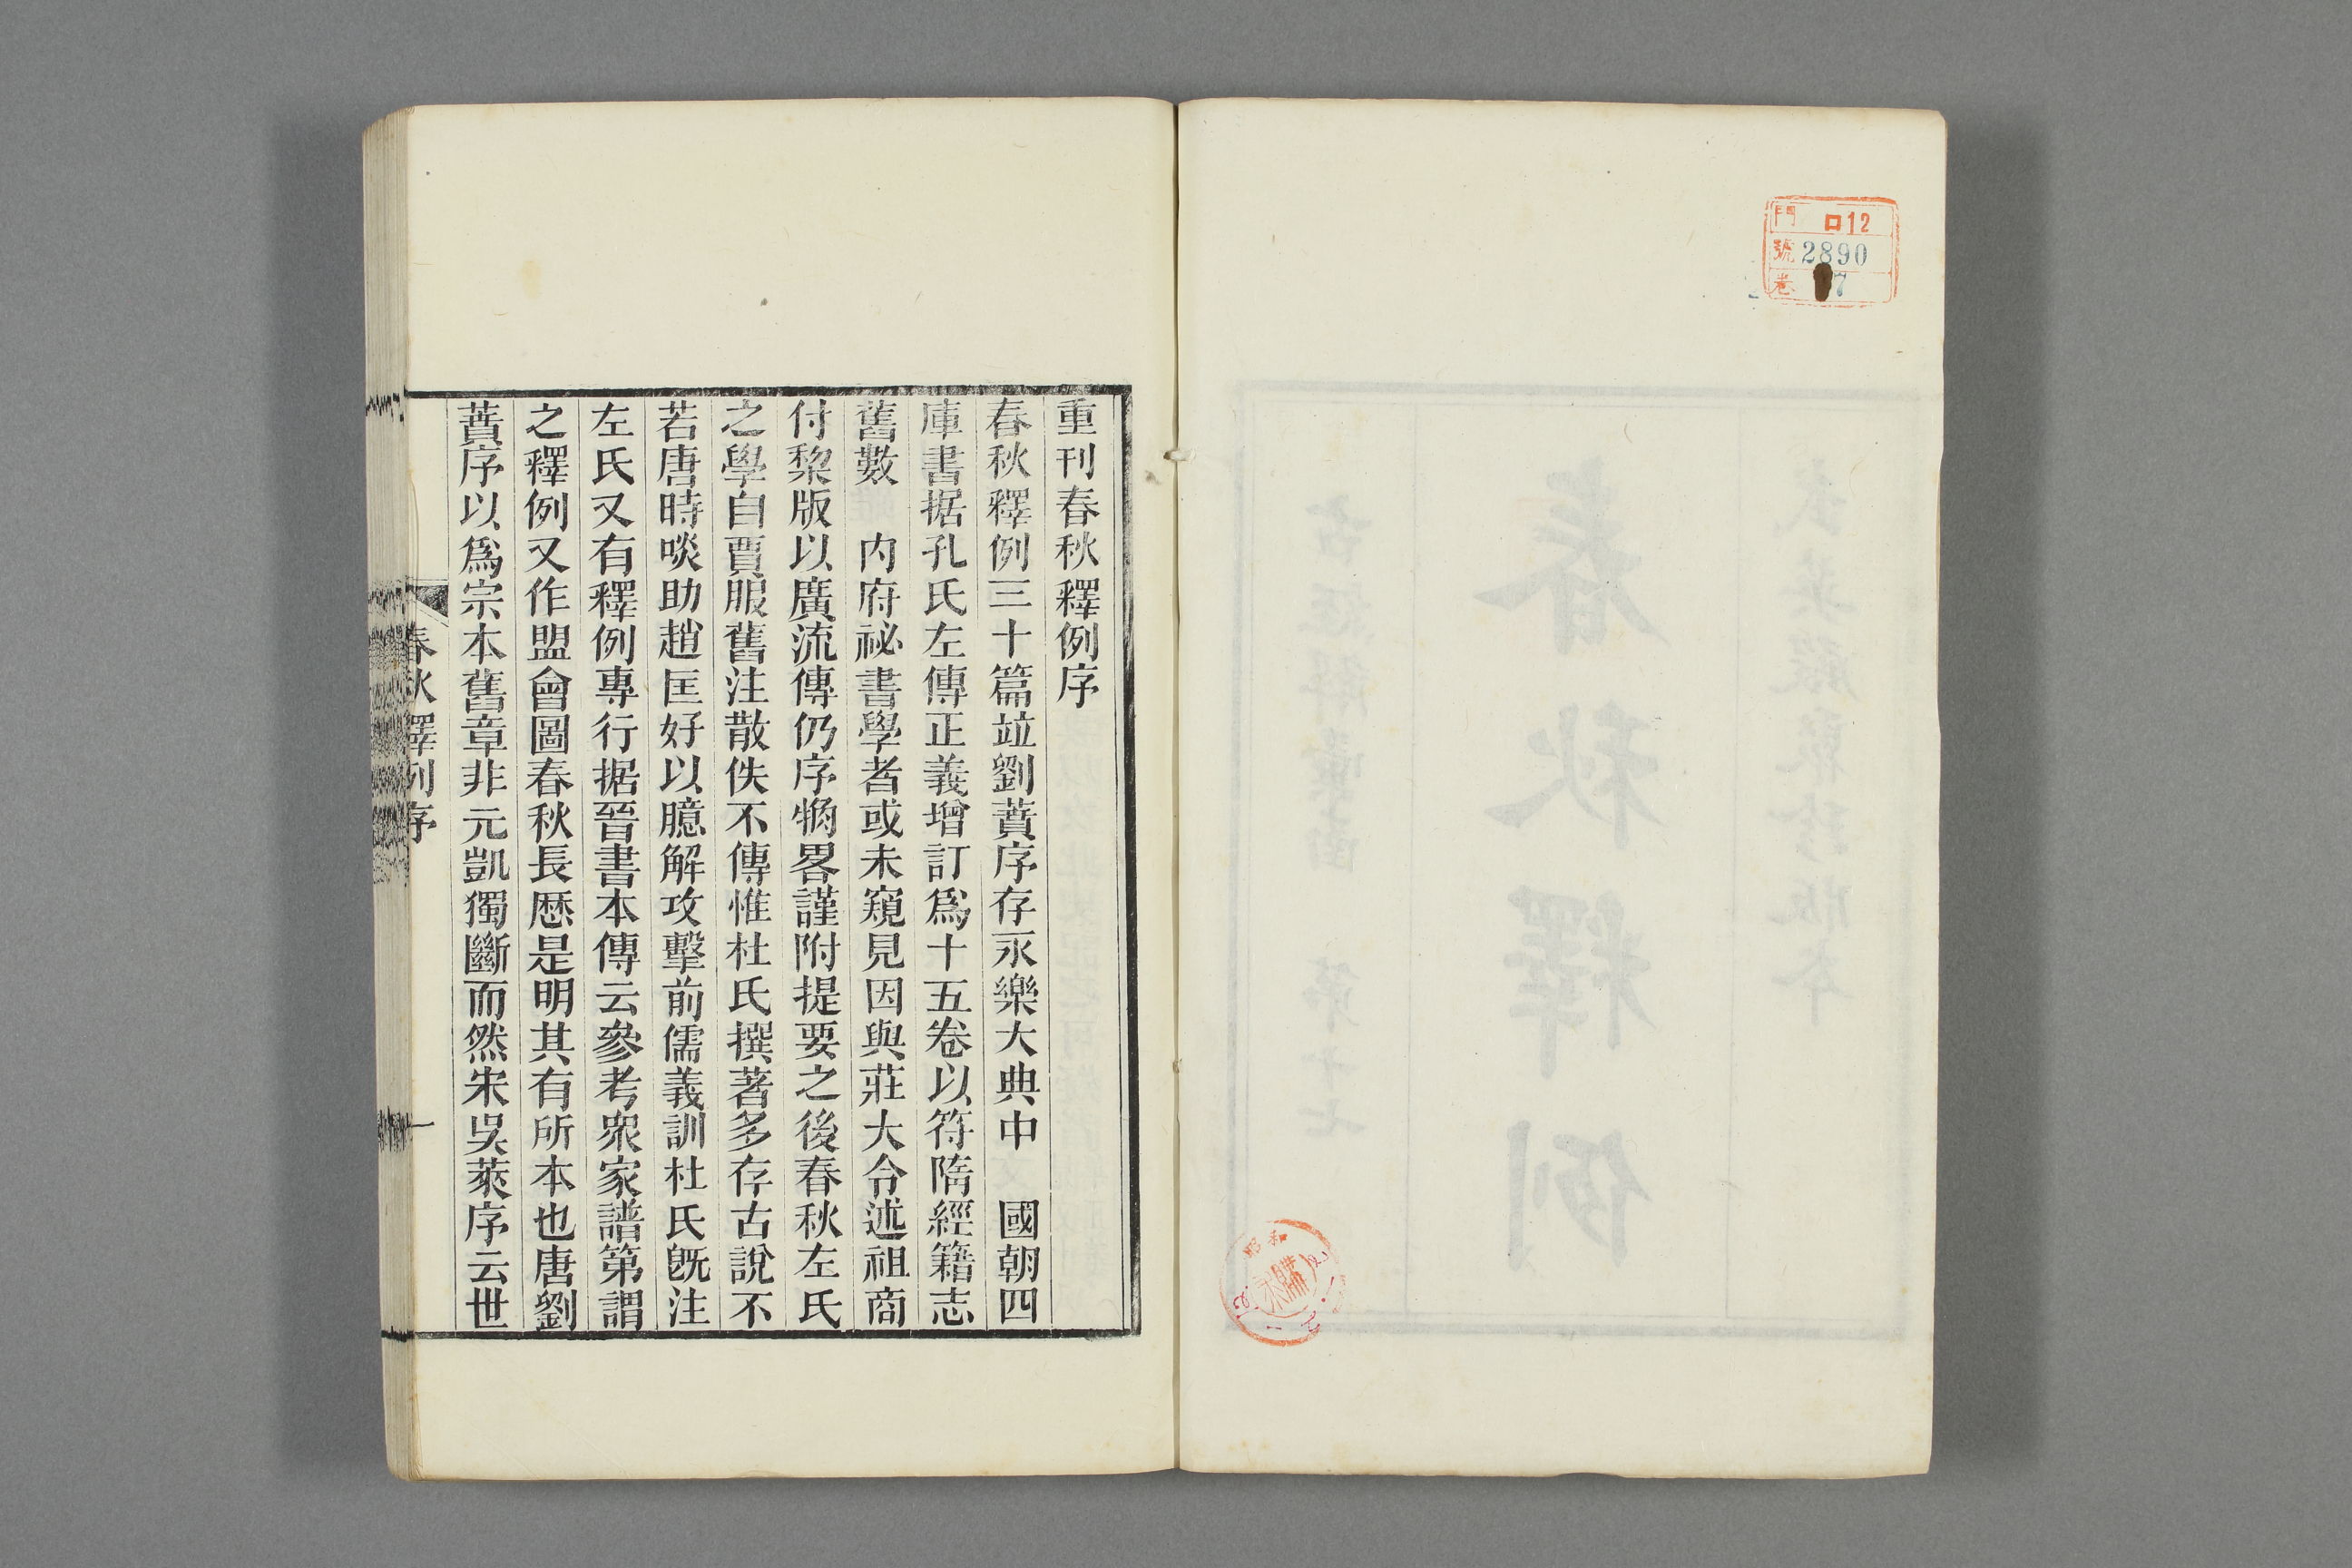 門 ロ12
號 2890
卷 7
重刊春秋釋例序
春秋釋例三十篇竝劉蕡序存永樂大典中 國朝四
庫書据孔氏左傳正義增訂爲十五卷以符隋經籍志
舊數 內府祕書學者或未窺見因與莊大令述祖商
付棃版以廣流傳仍序觕畧謹附提要之後春秋左氏
之學自賈服舊注散佚不傳惟杜氏撰著多存古說不
若唐時啖助趙匡好以臆解攻擊前儒義訓杜氏旣注
左氏又有釋例專行据晉書本傳云參考衆家譜第謂
之釋例又作盟會圖春秋長厯是明其有所本也唐劉
蕡序以爲宗本舊章非元凱獨斷而然宋吳萊序云世
春秋釋例序
一